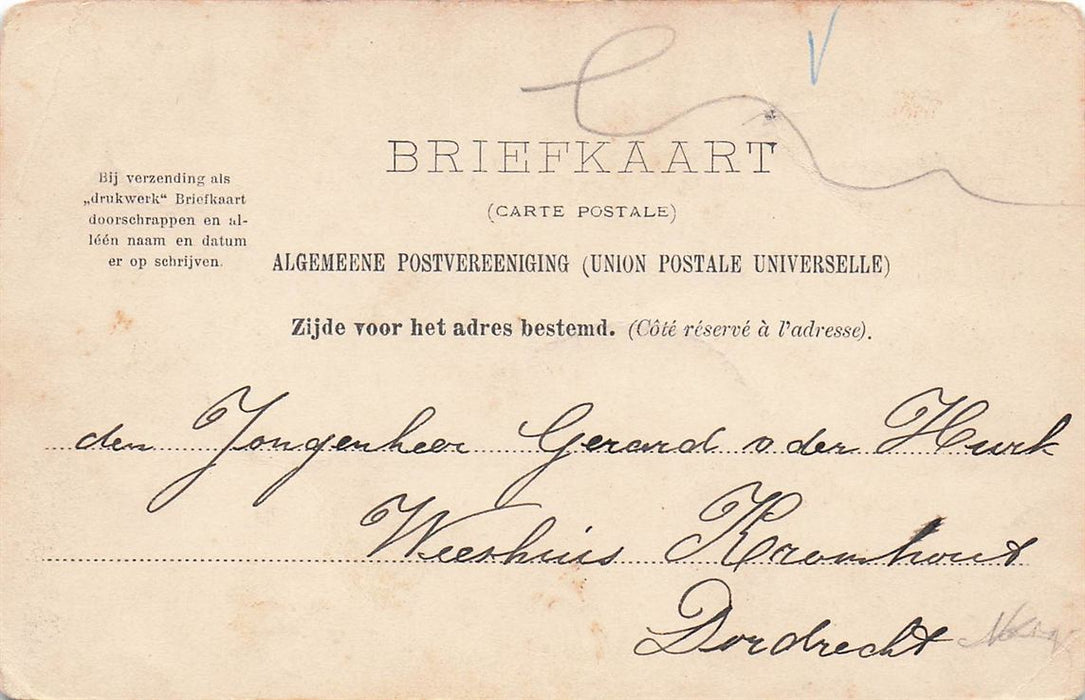 BRIEFKAART
(CARTE POSTALE)
ALGEMEENE POSTVEREENIGING (UNION POSTALE UNIVERSELLE)
Zijde voor het adres bestemd. (Côté réservé à l'adresse).
Bij verzending als
„drukwerk“ Briefkaart
doorschrappen en al-
léén naam en datum
er op schrijven.
den Jongenheer Gerard v der Hurk
Weeshuis Kromhout
Dordrecht